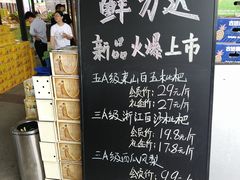 鲜力达
新品火爆上市
五A级东山白玉枇杷
会员价:29元/斤
27元/斤
三A级浙江白沙枇杷
会员价:19.8元/斤
17.8元/斤
三A级西瓜凤梨
会员价:9.9